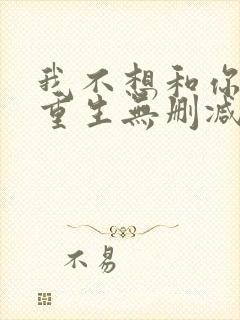 我不想和你
重生無删减
不易